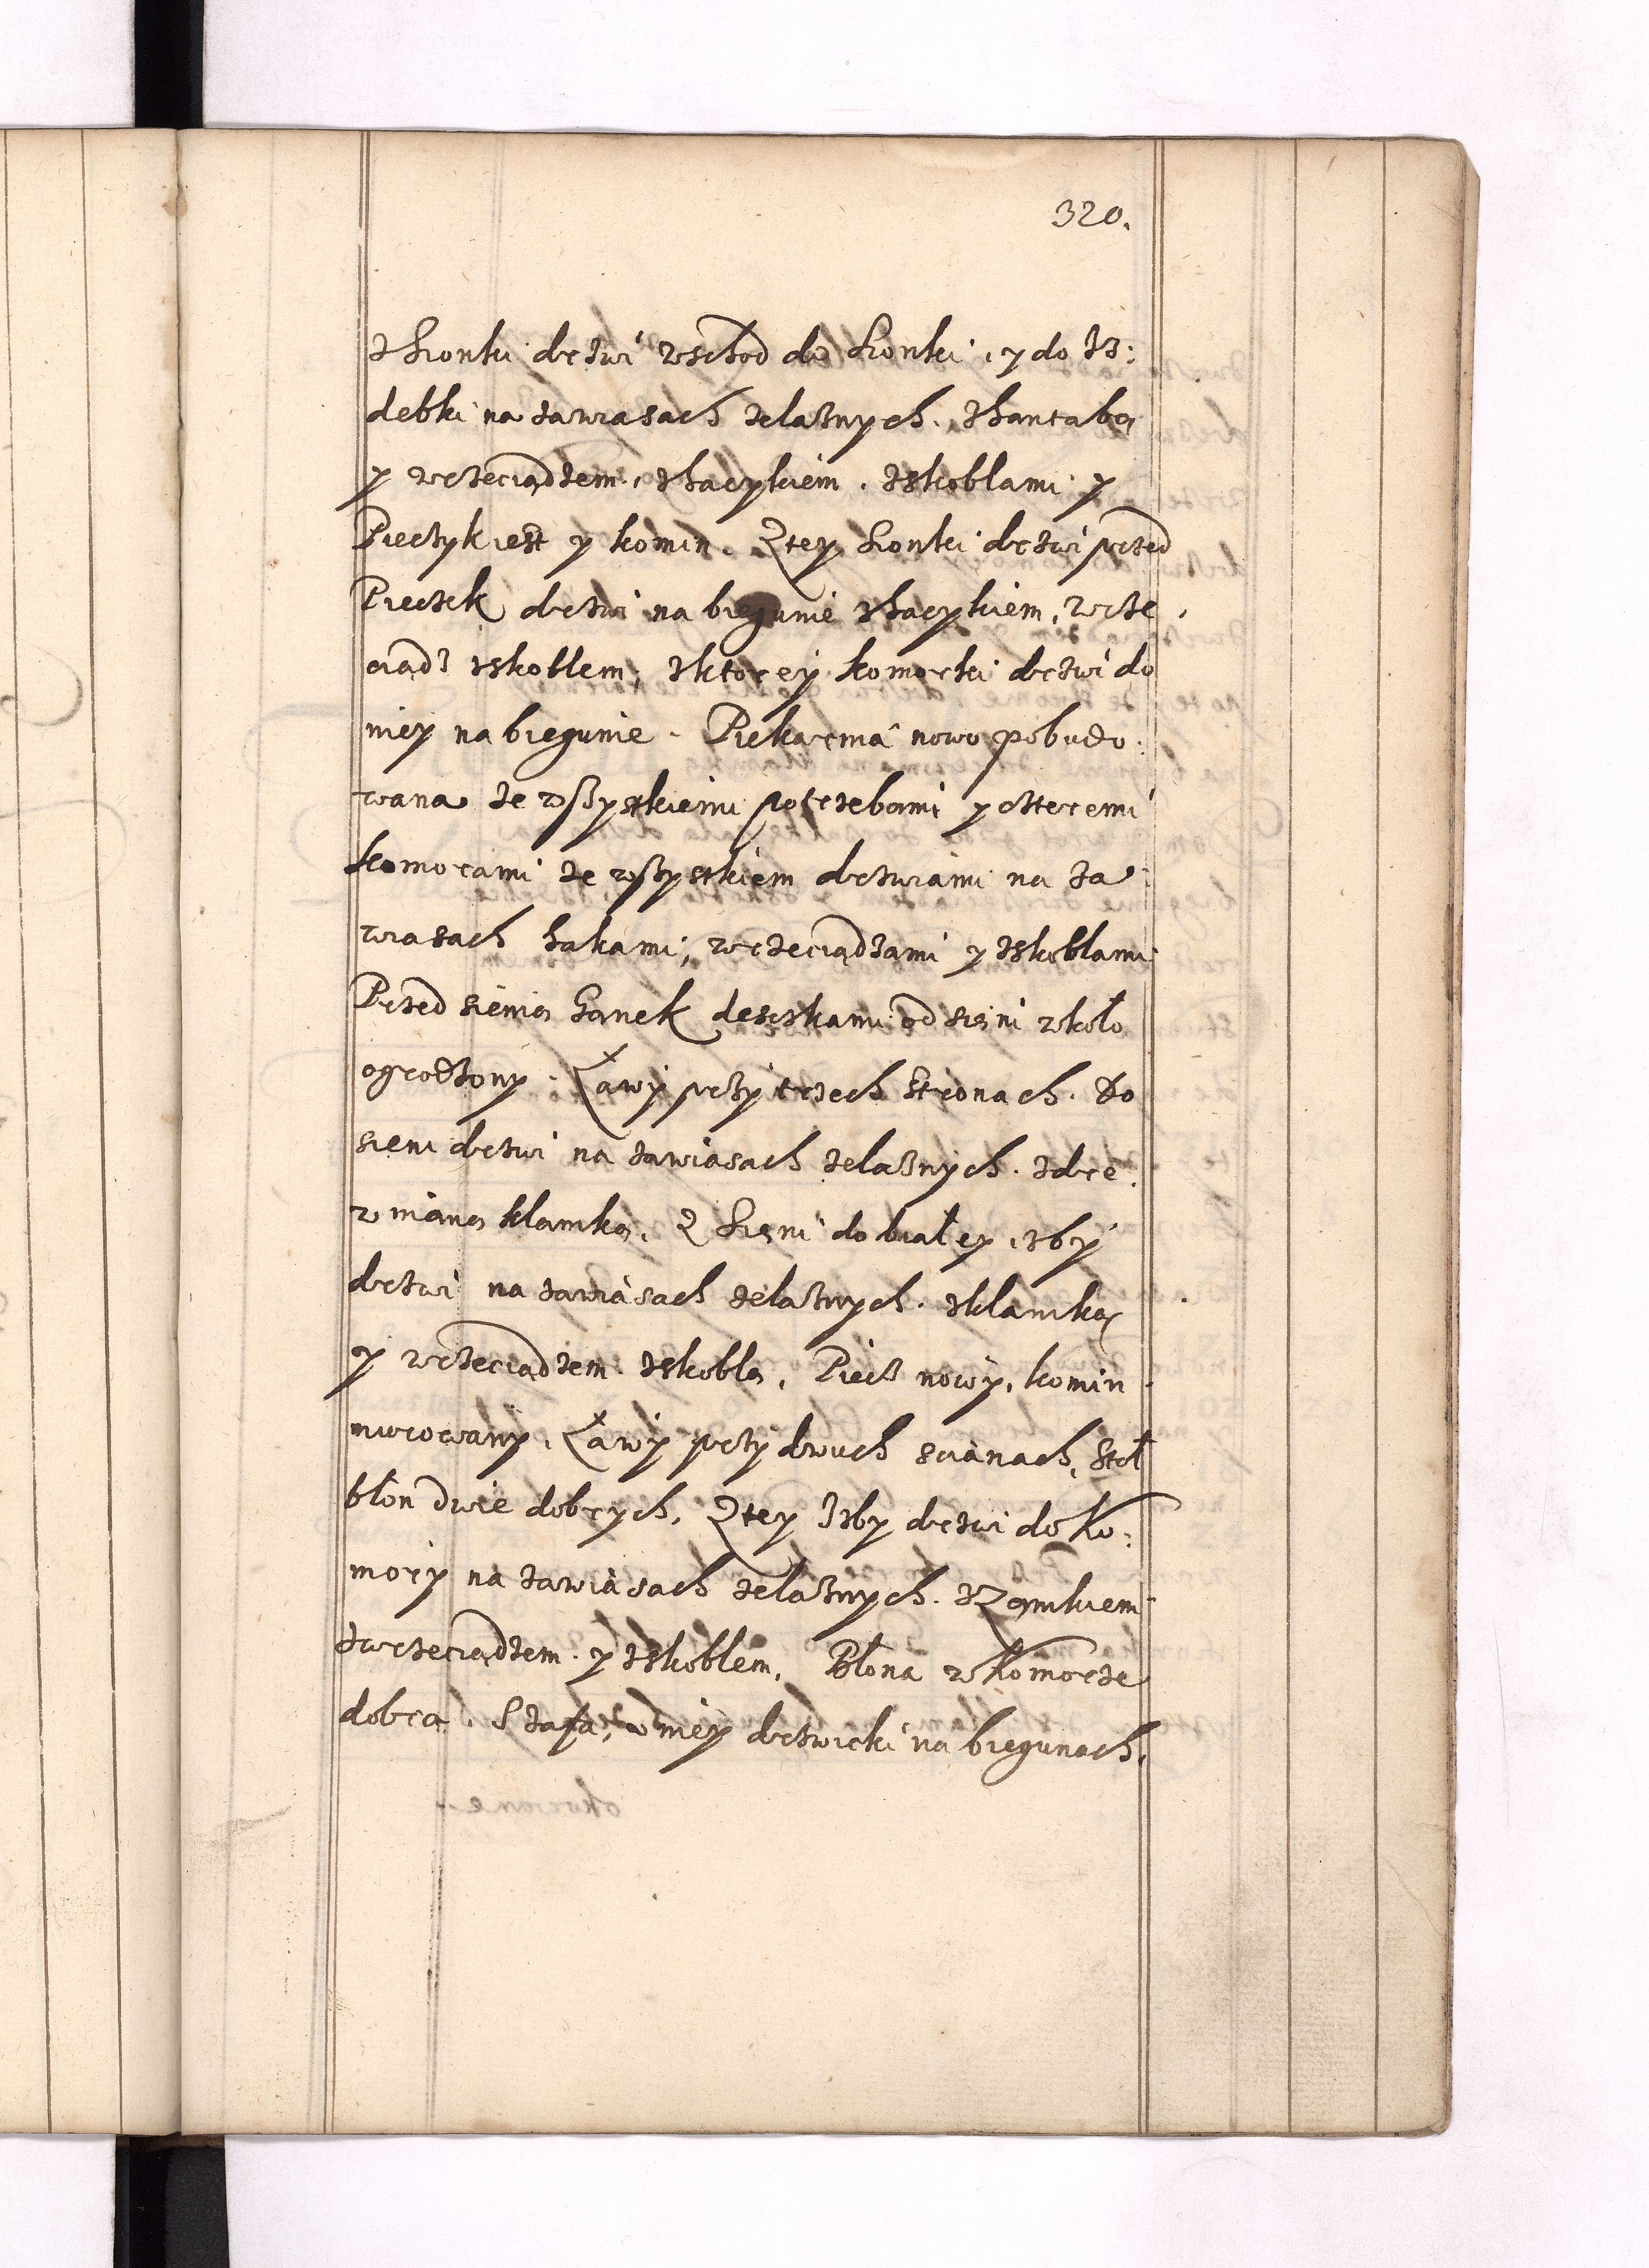 320.
z Sionki drzwi wschod do Sionki, y do Iz:
debki na zawiasach zelaznych. z hantabą
y wrzeciądzem, z haczykiem. z skoblami y
Pieczyk iest y komin. Z tey Sionki drzwi przed
Pieczek drzwi na biegunie z haczykiem, wrze,
ciądz z skoblem, z ktorey komorki drzwi do
niey na biegunie. Piekarnia nowo pobudo:
wana ze wszystkiemi potrzebami y czteremi
komorami ze wszystkiem drzwiami na za:
wiasach hakami, wrzeciądzami y z skoblami
Przed sienią Ganek deszczkami od sieni wkoło
ogrodzony. Ławy przy trzech stronach. Do
sieni drzwi na zawiasach zelaznych. z dre:
wnianą klamką. Z Sieni do białey izby
drzwi na zawiasach zelaznych. z klamką
y wrzeciądzem z skoblą, Piec nowy, komin
murowany, Ławy przy dwuch scianach, Stoł
błon dwie dobrych, Z tey Izby drzwi do Ko:
mory na zawiasach zelaznych. z Zamkiem
z wrzeciądzem y z skoblem, Błona w Komorze
dobra. Szafa, w niey drzwiczki na biegunach,